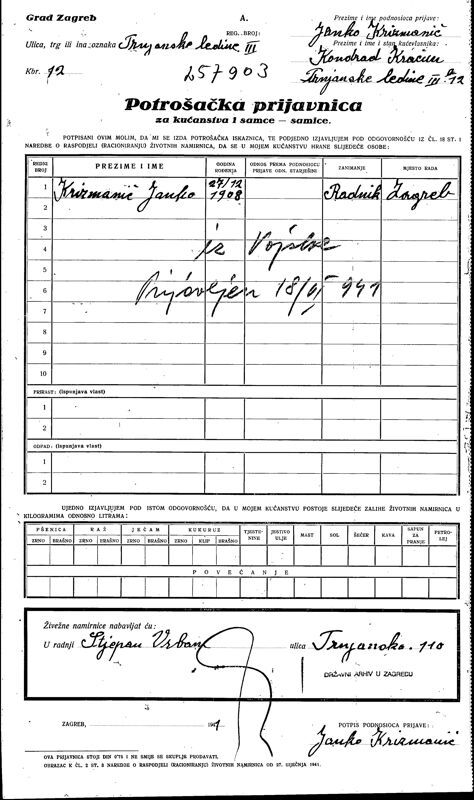 Grad Zagreb
A.
Prezime i ime podnosioca prijave:
Janko Krizmanić
Ulica, trg ili ina oznaka Trnjanske ledine III
REG. BROJ:
Prezime i ime i stan kućevlasnika:
Kbr. 12
257903
Trnjanske ledine III 12
Potrošačka prijavnica
za kućanstva i samce — samice.
POTPISANI OVIM MOLIM, DA MI SE IZDA POTROŠAČKA ISKAZNICA, TE PODJEDNO IZJAVLJUJEM POD ODGOVORNOŠĆU IZ ČL. 18 ST. 1
NAREDBE O RASPODJELI (RACIONIRANJU) ŽIVOTNIH NAMIRNICA, DA SE U MOJEM KUĆANSTVU HRANE SLIJEDEĆE OSOBE:
REDNI BROJ
PREZIME I IME
GODINA ROĐENJA
ODNOS PREMA PODNOSIOCU PRIJAVE ODN. STARJEŠINI
ZANIMANJE
MJESTO RADA
1 Krizmanić Janko 27/12 1908 Radnik Zagreb
2
3
4 iz Vojske
5
6 Prijavljen 18/VI 941
7
8
9
10
PRIRAST: (ispunjava vlast)
1
2
OTPAD: (ispunjava vlast)
1
2
UJEDNO IZJAVLJUJEM POD ISTOM ODGOVORNOŠĆU, DA U MOJEM KUĆANSTVU POSTOJE SLIJEDEĆE ZALIHE ŽIVOTNIH NAMIRNICA U
KILOGRAMIMA ODNOSNO LITRAMA:
PŠENICA RAŽ JEČAM KUKURUZ TJESTENINE JESTIVO ULJE MAST SOL ŠEĆER KAVA SAPUN ZA PRANJE PETROLEJ
ZRNO BRAŠNO ZRNO BRAŠNO ZRNO BRAŠNO ZRNO KLIP BRAŠNO
POVEĆANJE
Živežne namirnice nabavljat ću:
U radnji Stjepan Vrban ulica Trnjanska 110
DRŽAVNI ARHIV U ZAGREBU
ZAGREB, 1941
POTPIS PODNOSIOCA PRIJAVE:
Janko Krizmanić
OVA PRIJAVNICA STOJI DIN 0'75 I NE SMIJE SE SKUPLJE PRODAVATI.
OBRAZAC K ČL. 2 ST. 3 NAREDBE O RASPODJELI (RACIONIRANJU) ŽIVOTNIH NAMIRNICA OD 27. SIJEČNJA 1941.